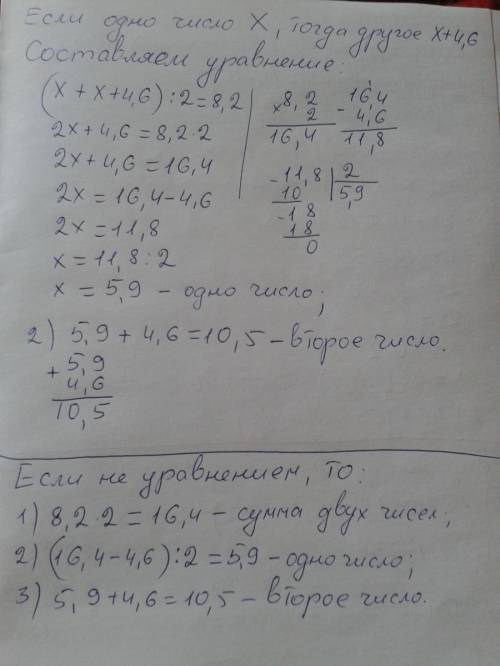 Если одно число X, тогда другое x+4,6
Составляем уравнение:
(x + x+4,6):2=8,2
2x+4,6=8,2·2
2x+4,6=16,4
2x=16,4-4,6
2x=11,8
x=11,8:2
x=5,9 - одно число;
×8,2
2
16,4
-16,4
4,6
11,8
-11,8 2
10 5,9
-18
18
0
2) 5,9+4,6=10,5 - второе число.
+5,9
4,6
10,5
Если не уравнением, то:
1) 8,2·2=16,4 - сумма двух чисел;
2) (16,4-4,6):2=5,9 - одно число;
3) 5,9+4,6=10,5 - второе число.